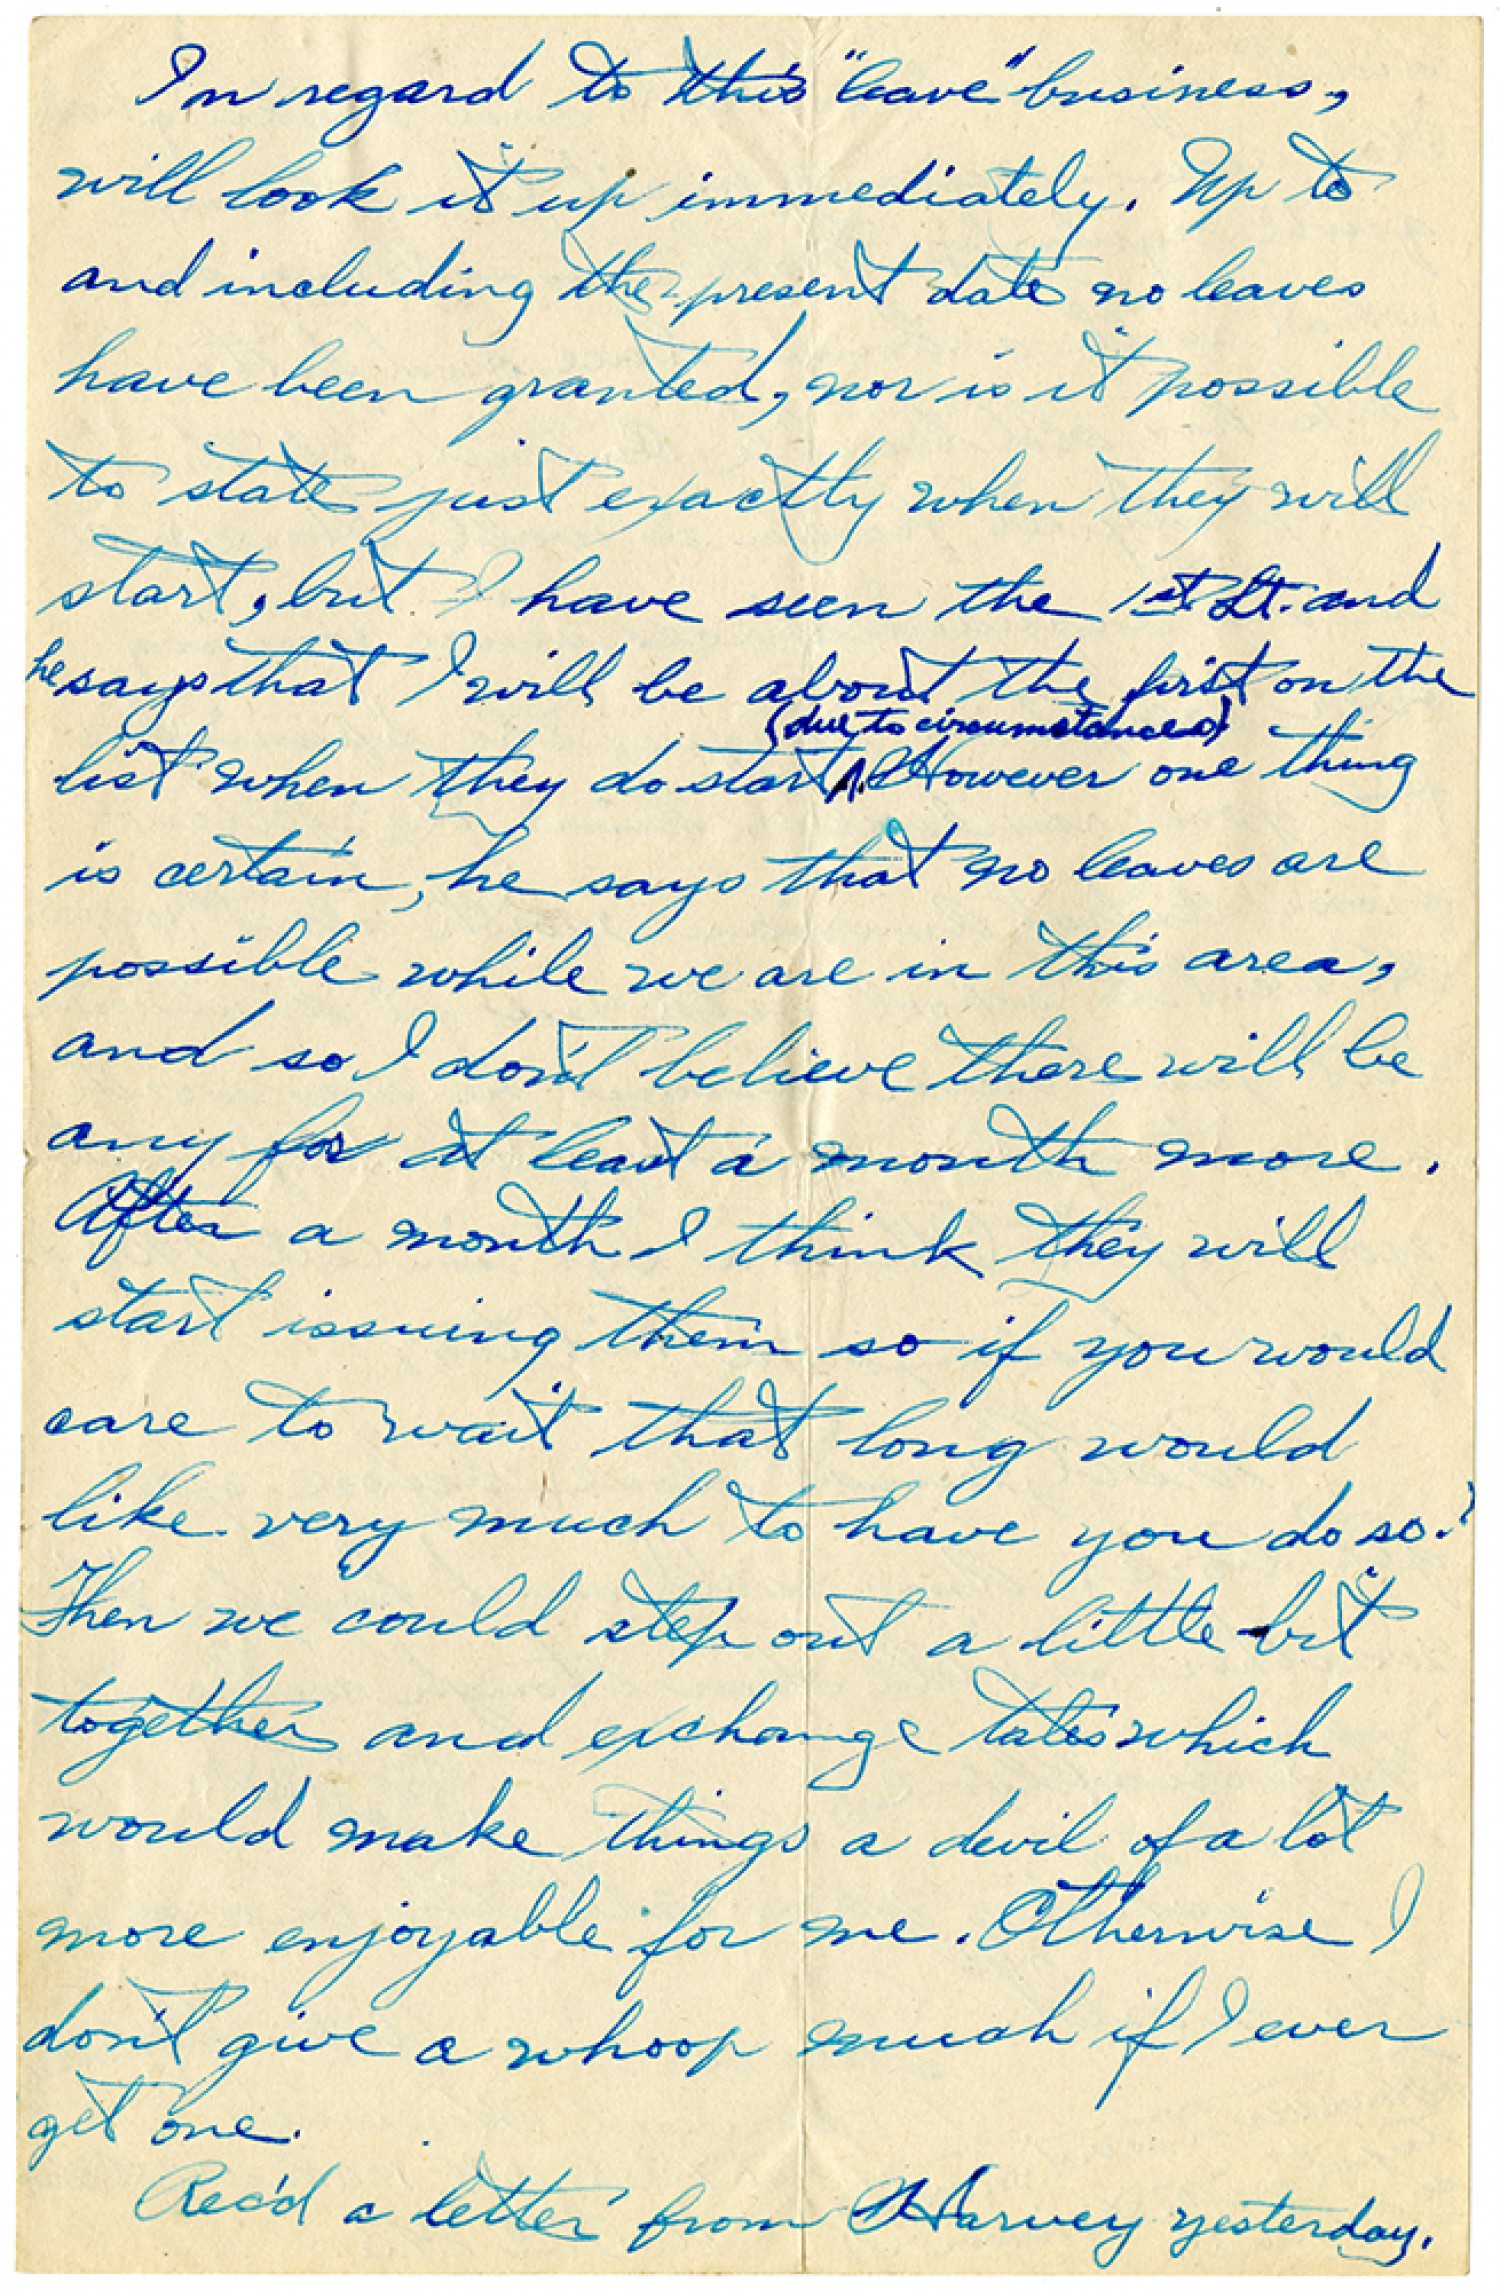 In regard to this "leave" business,
will look it up immediately. Up to
and including the present date no leaves
have been granted, nor is it possible
to state just exactly when they will
start, but I have seen the 1st Lt. and
he says that I will be about the first on the
(due to circumstances)
list when they do start. However one thing
is certain, he says that no leaves are
possible while we are in this area,
and so I don't believe there will be
any for at least a month more.
After a month I think they will
start issuing them so if you would
care to wait that long would
like very much to have you do so.
Then we could step out a little bit
together and exchange tales which
would make things a devil of a lot
more enjoyable for me. Otherwise I
don't give a whoop much if I ever
get one.
Rec'd a letter from Harvey yesterday.